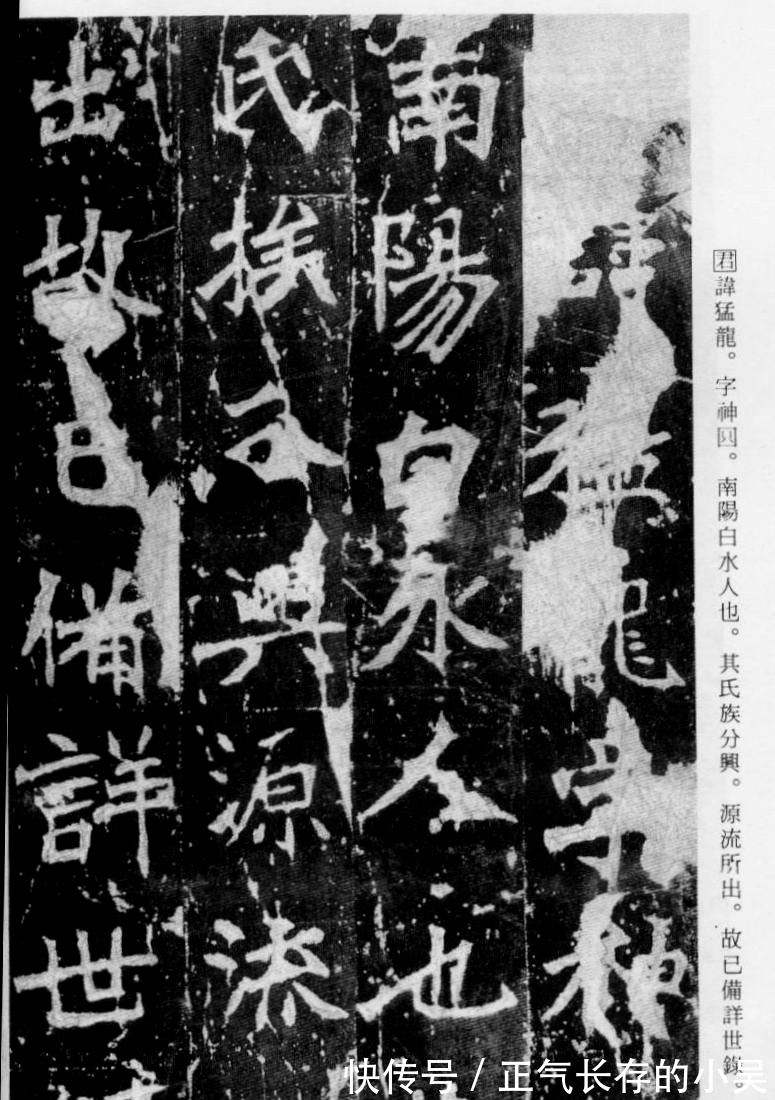 君諱猛龍。字神囧。南陽白水人也。其氏族分興。源流所出。故已備詳世錄。
諱猛龍字神
南陽白水人也
氏族分興源流
出故已備詳世
快传号 / 正气长存的小吴